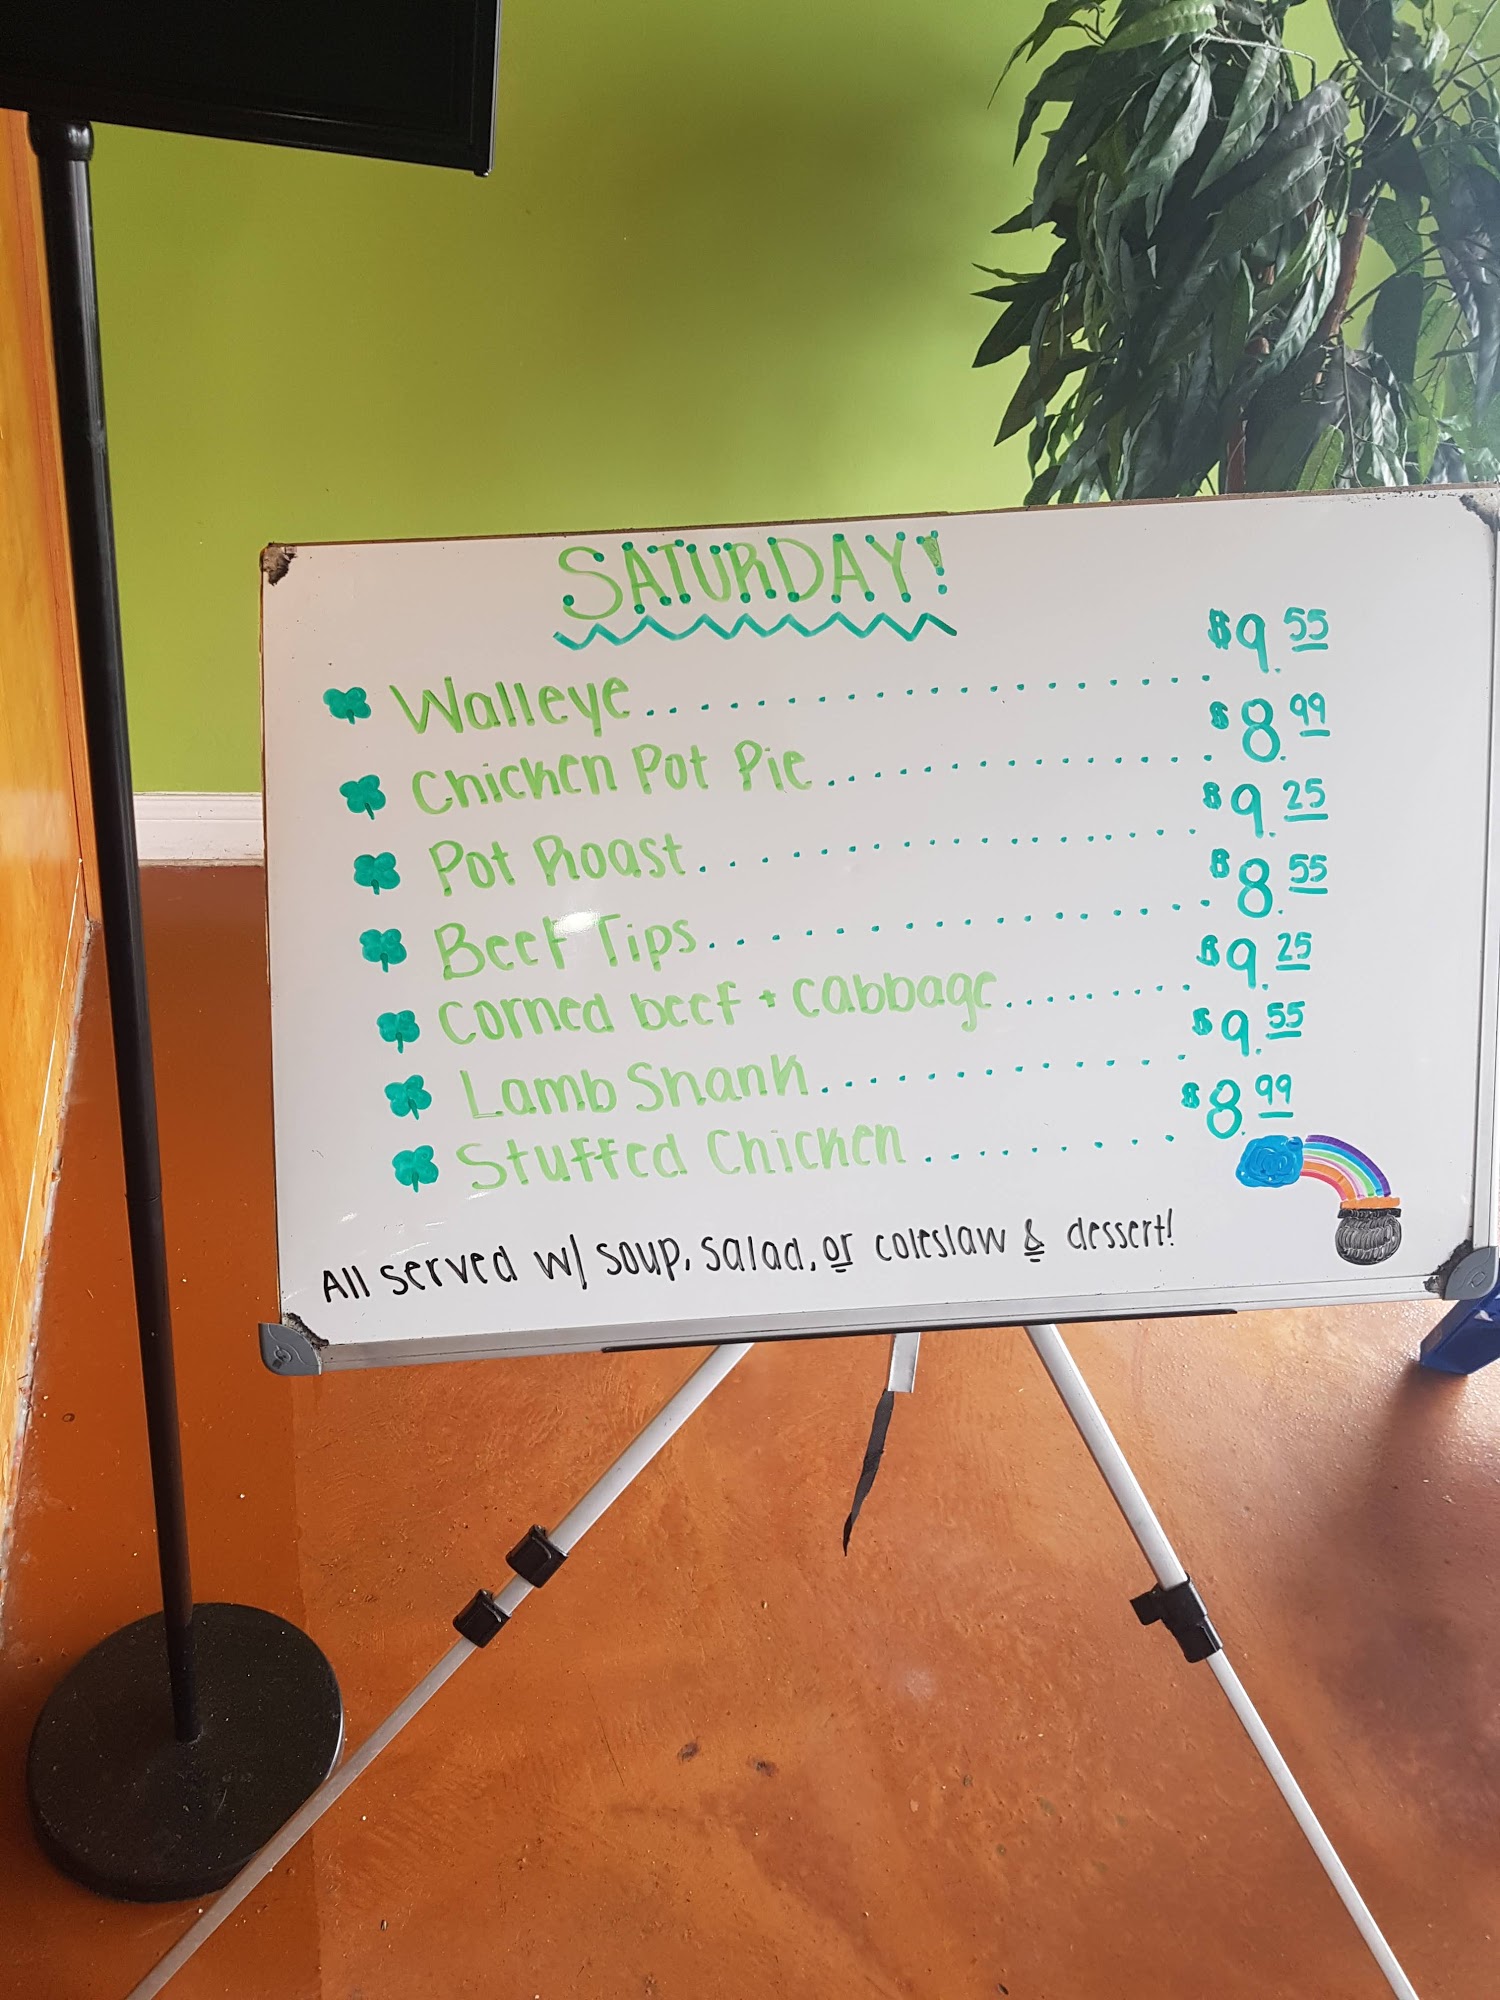 SATURDAY!
Walleye.................... $9.55
Chicken Pot Pie............... $8.99
Pot Roast.................. $9.25
Beef Tips.................. $8.55
Corned beef + cabbage......... $9.25
Lamb Shank.............. $9.55
Stuffed Chicken......... $8.99
All served w/ soup, salad, or coleslaw & dessert!